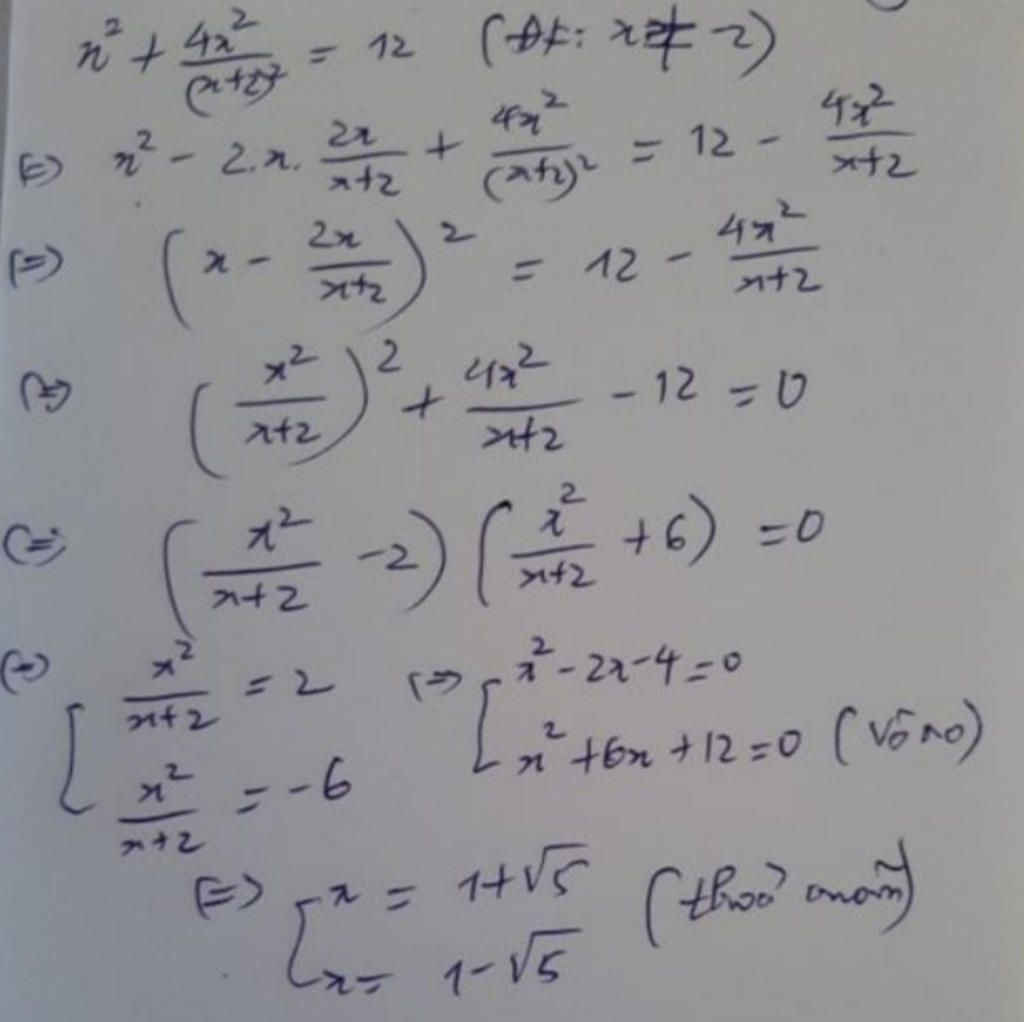 x² + 4x²/(x+2)² = 12 (ĐK: x ≠ -2)
(=) x² - 2.x. 2x/(x+2) + 4x²/(x+2)² = 12 - 4x²/(x+2)
(=) (x - 2x/(x+2))² = 12 - 4x²/(x+2)
(=) (x²/(x+2))² + 4x²/(x+2) - 12 = 0
(=) (x²/(x+2) - 2) (x²/(x+2) + 6) = 0
(=) [ x²/(x+2) = 2 (=) [ x² - 2x - 4 = 0
x²/(x+2) = -6 x² + 6x + 12 = 0 (vô no)
(=) [ x = 1+√5 (thoả mãn)
x = 1-√5